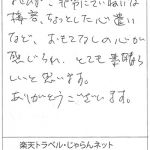 接客、ちょっとした心遣い
など、おもてなしの心が
感じられ、とても素晴ら
しいと思います。
ありがとうございます。
楽天トラベル・じゃらんネット